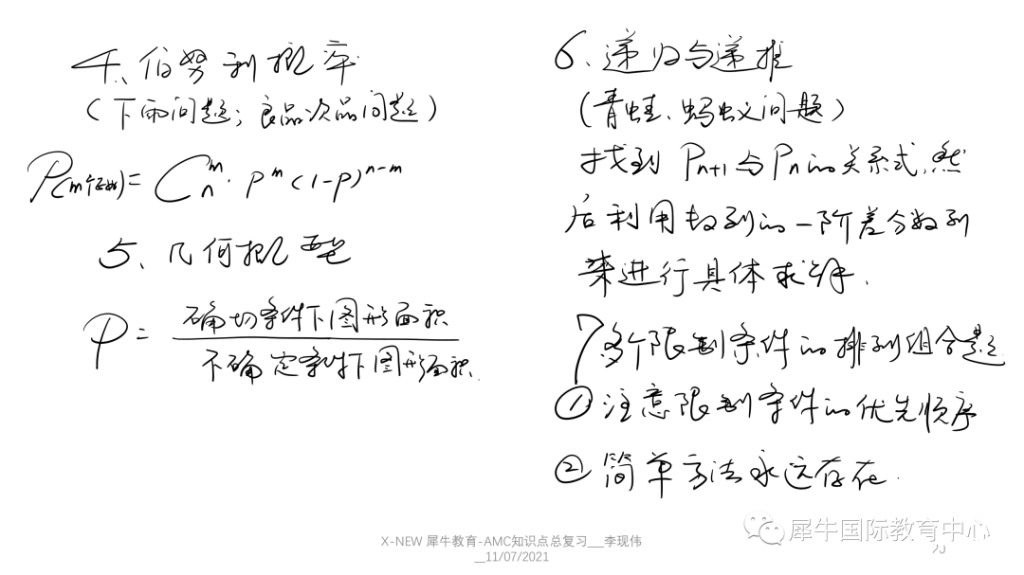 4、伯努利概率
（下雨问题；良品次品问题）
P(m个正面)= C_n^m · p^m (1-p)^{n-m}
5、几何概型
P = 确切条件下图形面积 / 不确定条件下图形面积
6、递归与递推
（青蛙、蚂蚁问题）
找到 P_{n+1} 与 P_n 的关系式，然
后利用数列的一阶差分数列
来进行具体求解．
7 多个限制条件的排列组合题
① 注意限制条件的优先顺序
② 简单方法永远存在．
X-NEW 犀牛教育-AMC知识点总复习___李现伟
__11/07/2021
犀牛国际教育中心